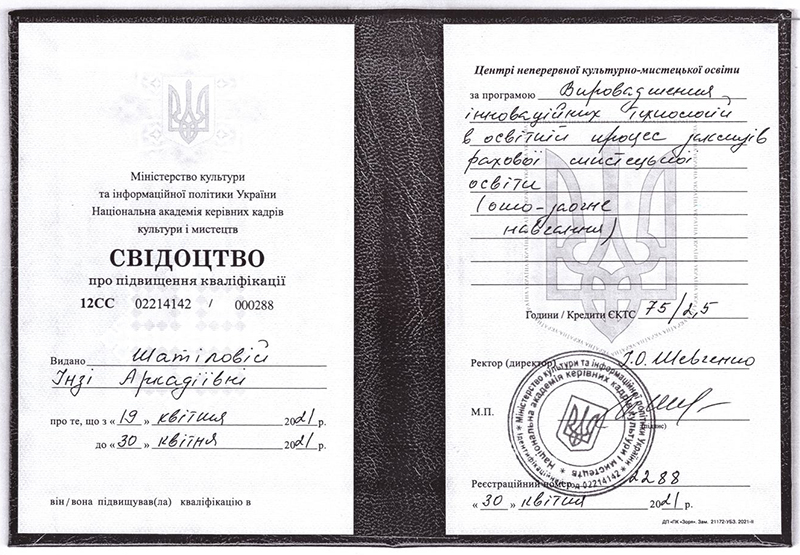 Міністерство культури
та інформаційної політики України
Національна академія керівних кадрів
культури і мистецтв
СВІДОЦТВО
про підвищення кваліфікації
12СС 02214142 / 000288
Видано Шатіловій
Інзі Аркадіївні
про те, що з « 19 » квітня 2021 р.
до « 30 » квітня 2021 р.
він/вона підвищував(ла) кваліфікацію в
Центрі неперервної культурно-мистецької освіти
за програмою Впровадження
інноваційних технологій
в освітній процес закладів
фахової мистецької
освіти
(очно-заочне
навчання)
Години / Кредити ЄКТС 75/2,5
Ректор (директор) І.О. Шевченко
М.П.
(підпис)
Міністерство культури та інформаційної політики України
Національна академія керівних кадрів культури і мистецтв
02214142
Реєстраційний номер 2288
« 30 » квітня 2021 р.
ДП «ПК «Зоря». Зам. 21172-УБЗ. 2021-ІІ